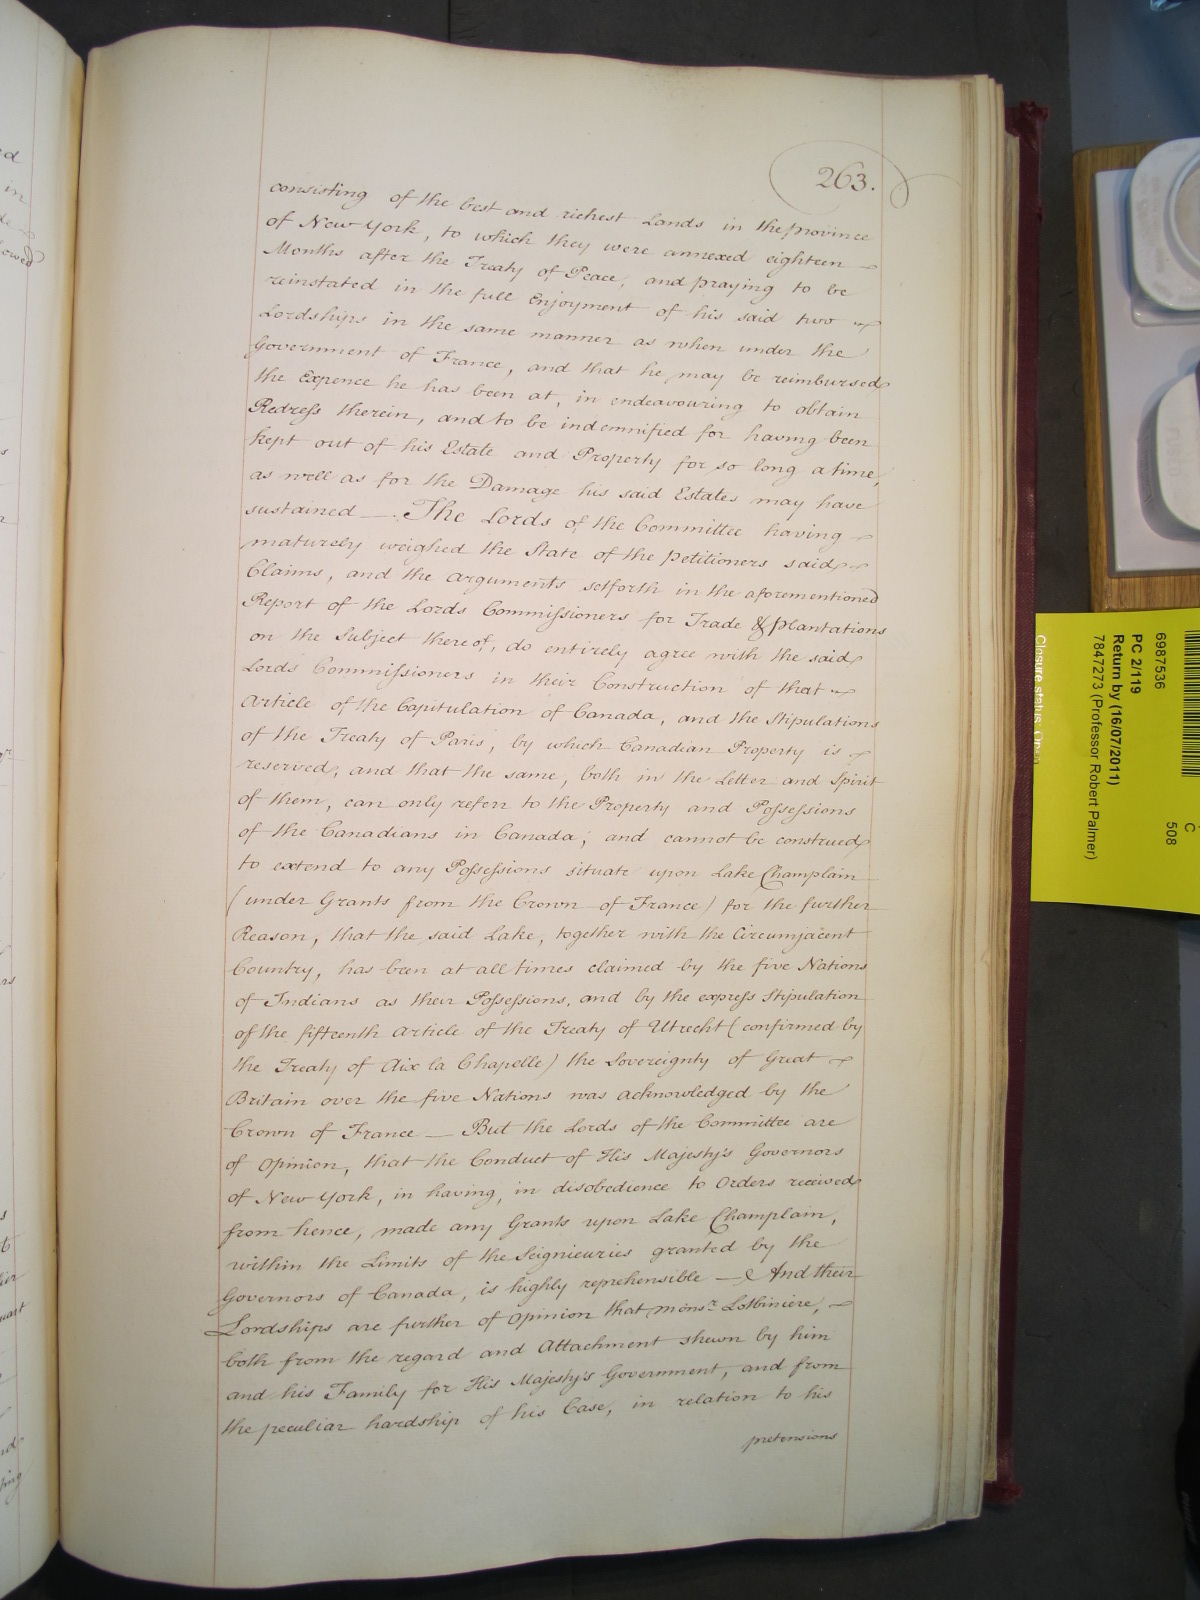 263.
consisting of the best and richest Lands in the province
of New York, to which they were annexed eighteen
Months after the Treaty of Peace, and praying to be
reinstated in the full Enjoyment of his said two
Lordships in the same manner as when under the
Government of France, and that he may be reimbursed
the Expence he has been at, in endeavouring to obtain
Redress therein, and to be indemnified for having been
kept out of his Estate and Property for so long a time,
as well as for the Damage his said Estates may have
sustained — The Lords of the Committee having
maturely weighed the State of the Petitioners said
Claims, and the arguments setforth in the aforementioned
Report of the Lords Commissioners for Trade & plantations
on the Subject thereof, do entirely agree with the said
Lords Commissioners in their Construction of that
Article of the Capitulation of Canada, and the Stipulations
of the Treaty of Paris, by which Canadian Property is
reserved, and that the same, both in the Letter and Spirit
of them, can only refer to the Property and Possessions
of the Canadians in Canada; and cannot be construed
to extend to any Possessions situate upon Lake Champlain
(under Grants from the Crown of France) for the further
Reason, that the said Lake, together with the Circumjacent
Country, has been at all times claimed by the five Nations
of Indians as their Possessions, and by the express Stipulation
of the fifteenth Article of the Treaty of Utrecht (confirmed by
the Treaty of Aix la Chapelle) the Sovereignty of Great
Britain over the five Nations was acknowledged by the
Crown of France — But the Lords of the Committee are
of Opinion, that the Conduct of His Majesty's Governors
of New York, in having, in disobedience to Orders received
from hence, made any Grants upon Lake Champlain,
within the Limits of the Seignieuries granted by the
Governors of Canada, is highly reprehensible — And their
Lordships are further of Opinion that monsr. Lotbiniere,
both from the regard and Attachment shewn by him
and his Family for His Majesty's Government, and from
the peculiar hardship of his Case, in relation to his
pretensions
6987536
PC 2/119
Return by (16/07/2011)
7847273 (Professor Robert Palmer)
Closure status: Open
C
508